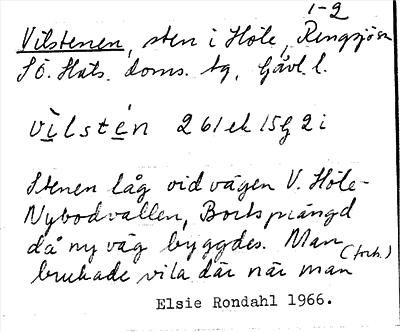 1-2
Vilstenen, sten i Höle, Rengsjö sn
SÖ. Häls. doms. tg, Gävl. l.
vìlstén 2 61 ek 15G 2 i
Stenen låg vid vägen V. Höle-
Nybodvallen, Bortsprängd
då ny väg byggdes. Man
brukade vila där när man (forts.)
Elsie Rondahl 1966.